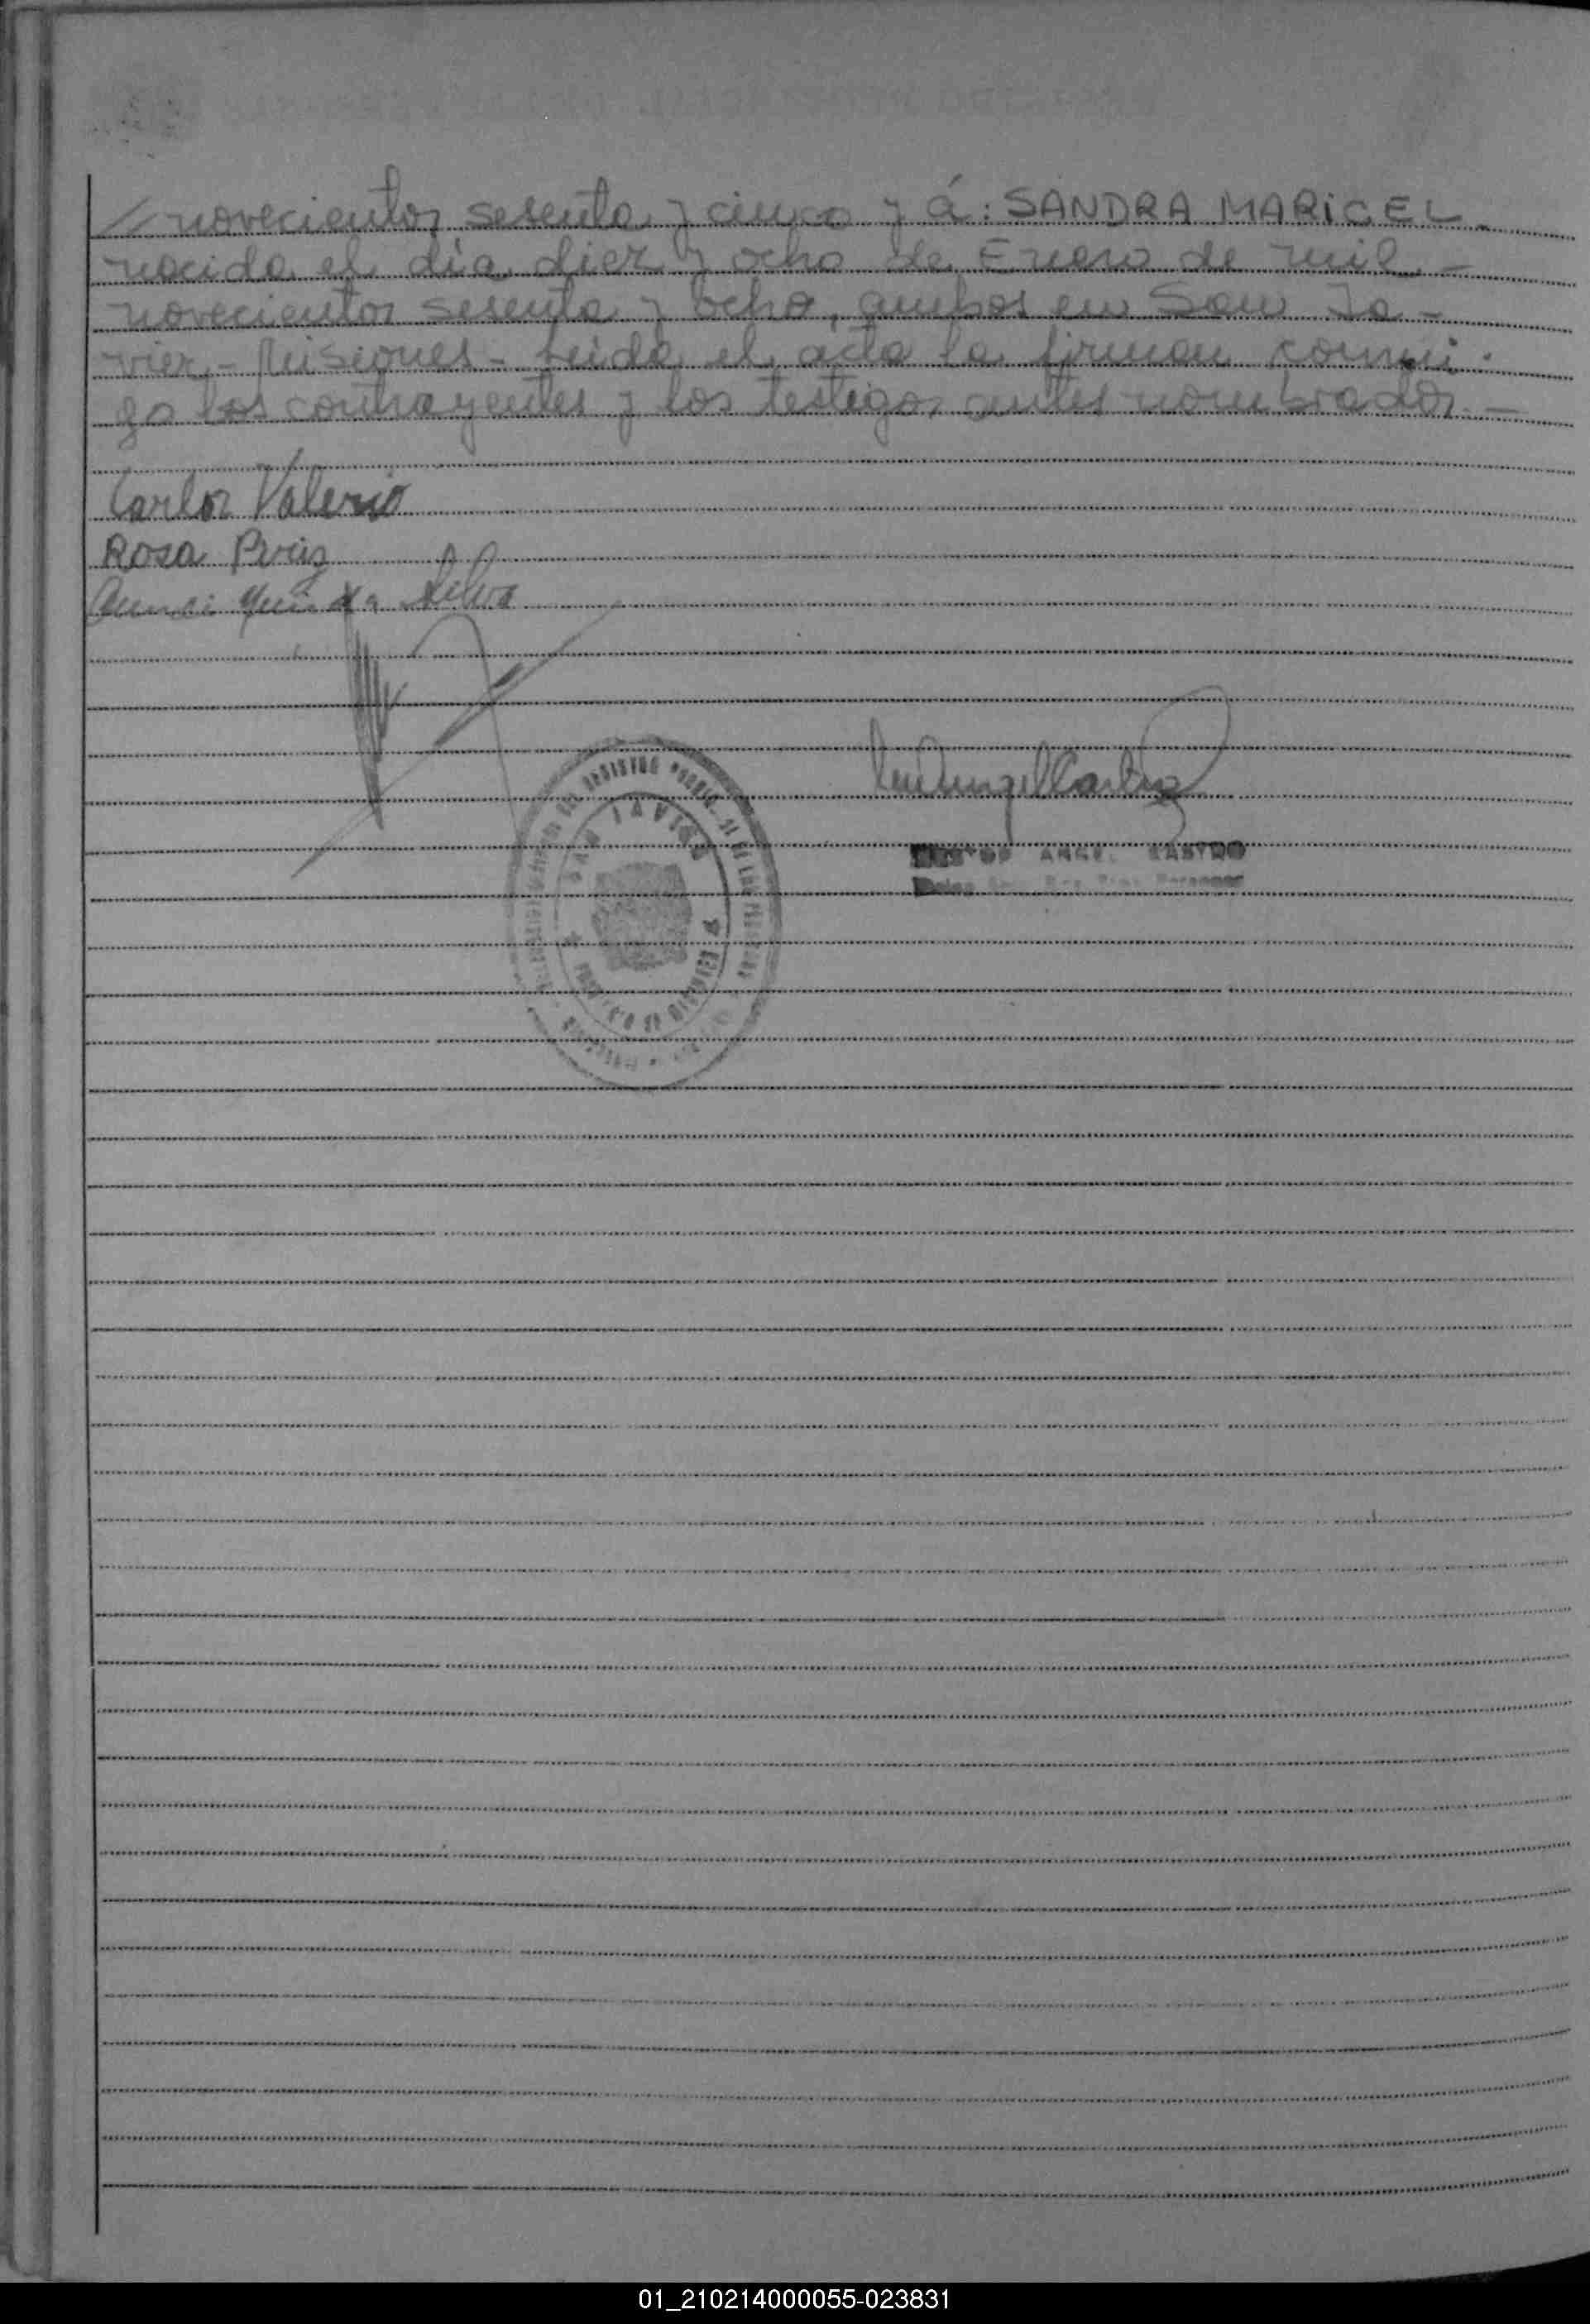 // novecientos sesenta y cinco y á: SANDRA MARICEL -
nacida el día diez y ocho de Enero de mil -
novecientos sesenta y ocho, ambos en San Ja -
vier - Misiones - Leida el acta la firman conmi -
go los contrayentes y los testigos antes nombrados. -
Carlos Valerio
Rosa
da Silva
SAN JAVIER
ANGEL CASTRO
01_210214000055-023831